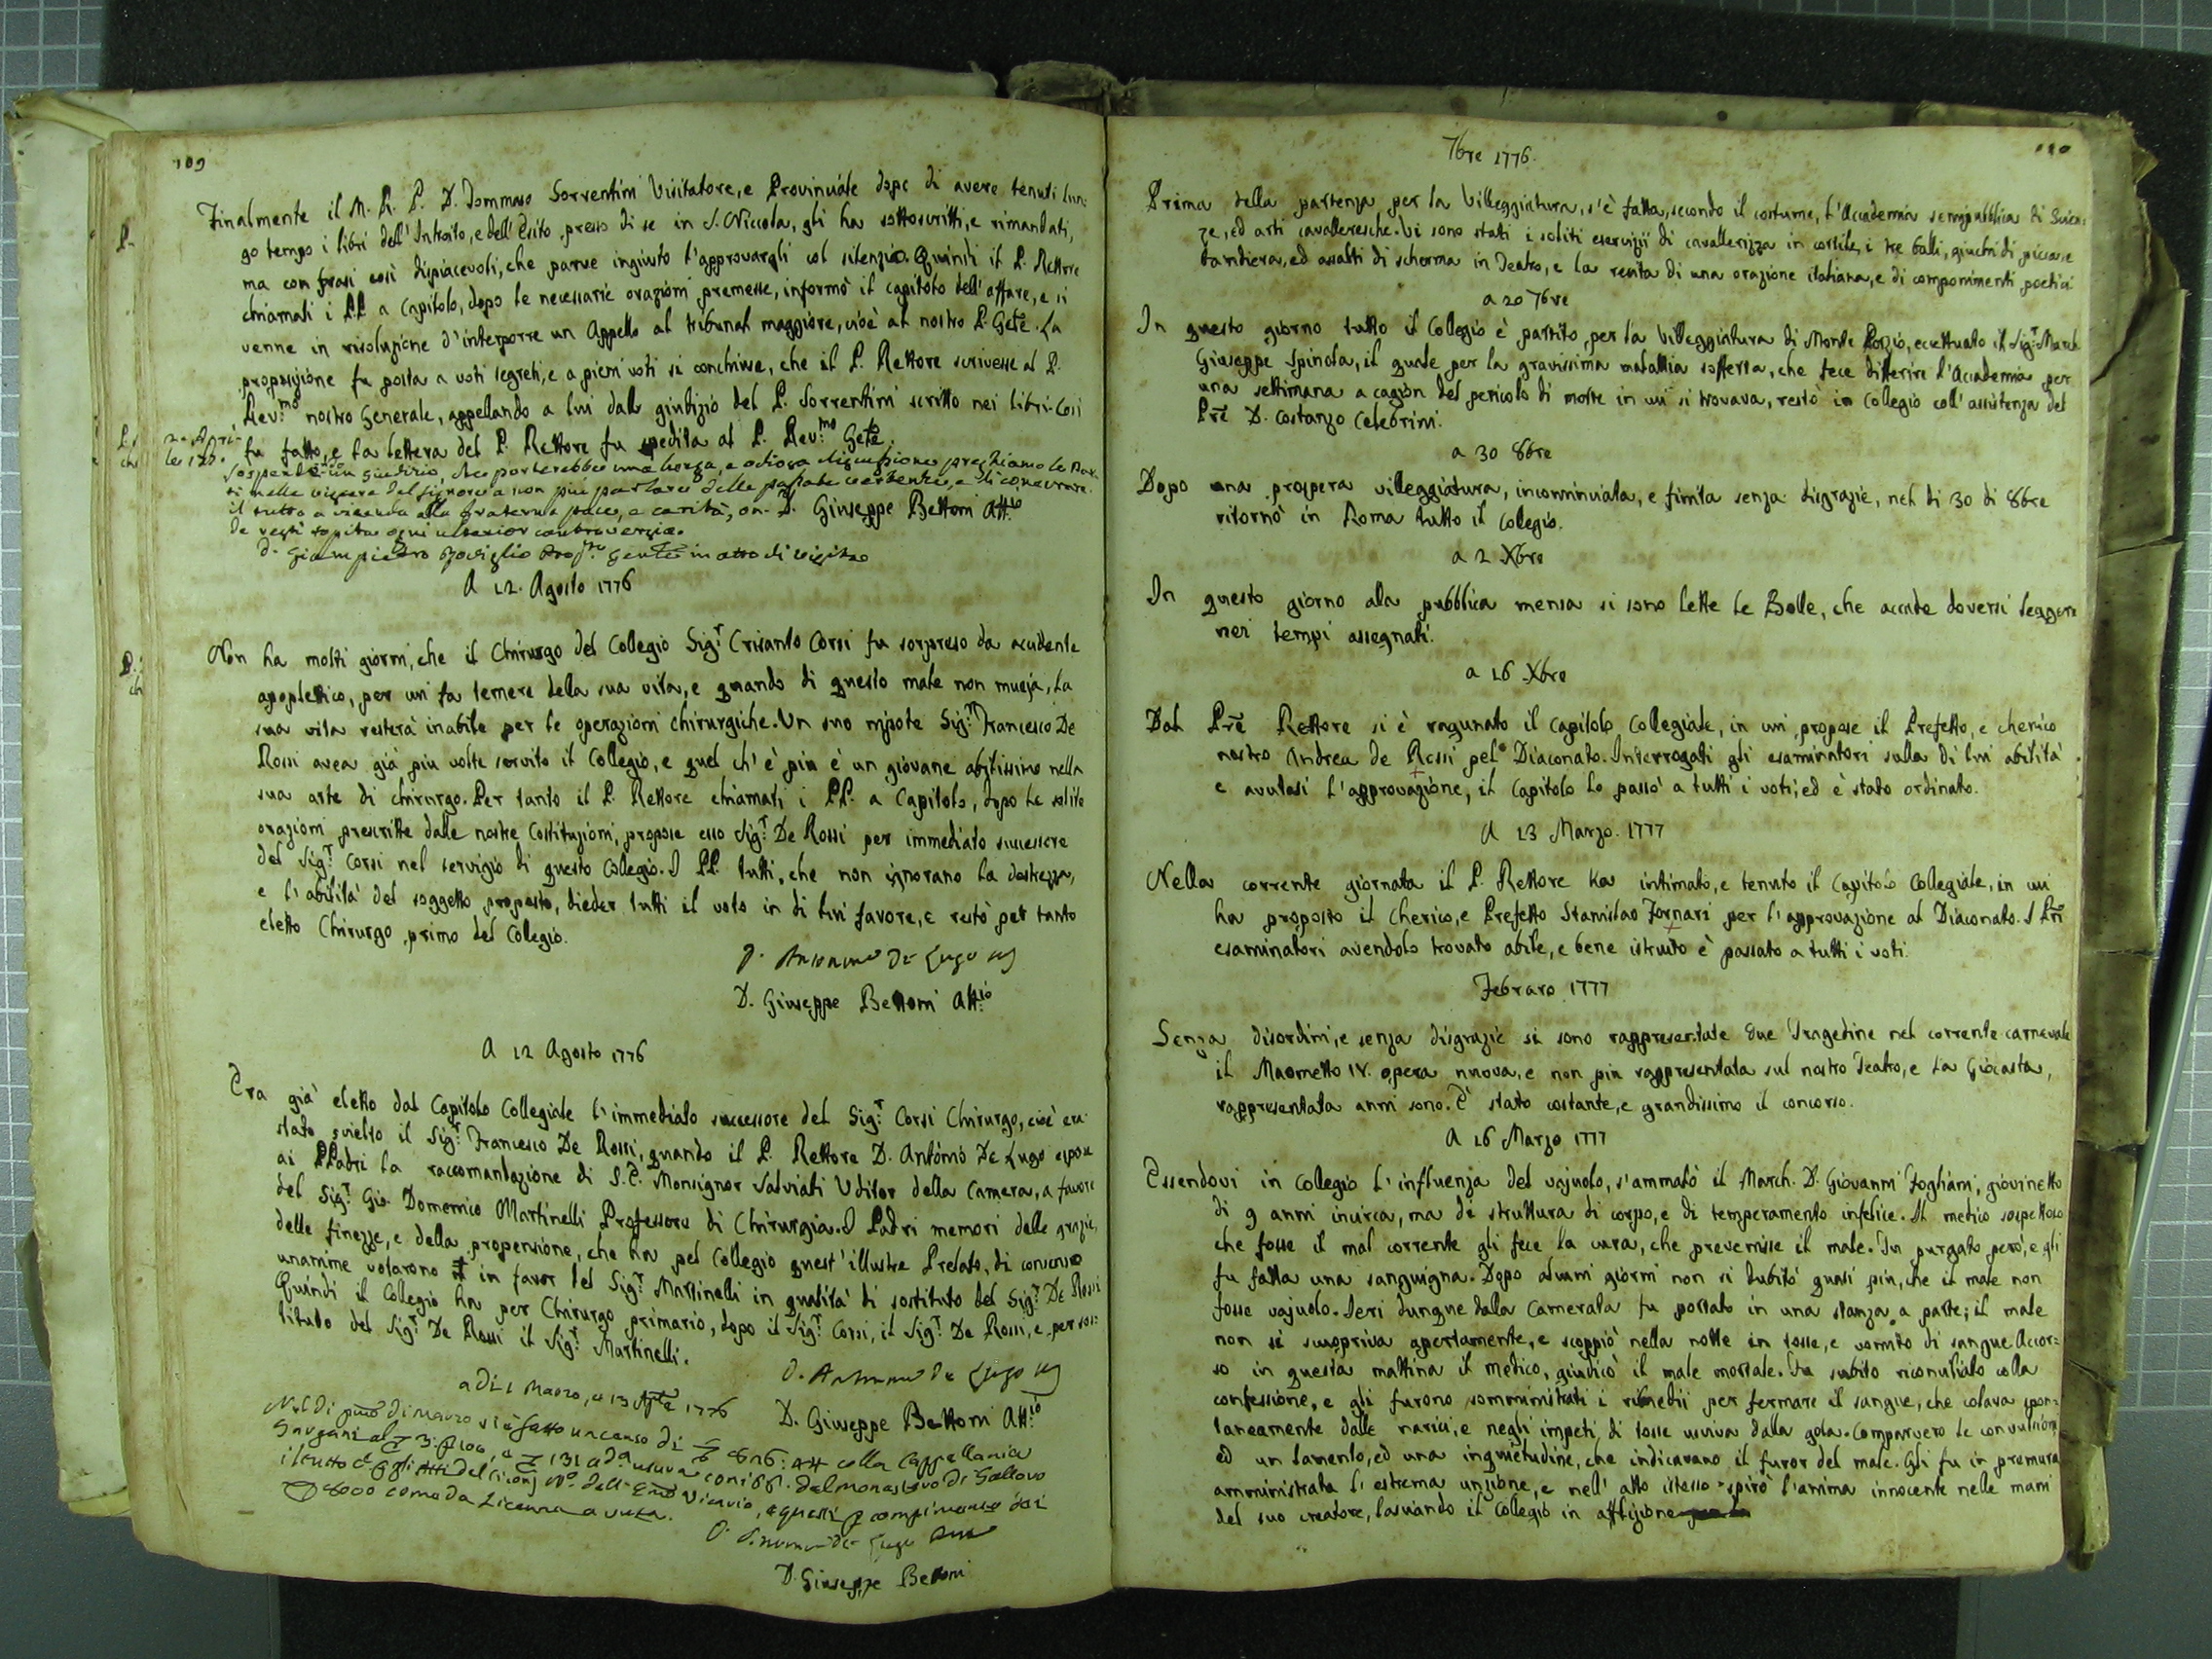 109
Finalmente il M. R. P. D. Tommaso Sorrentini Visitatore, e Provinciale dopo di avere tenuti lun:
go tempo i libri dell'Introito, e dell'Esito presso di se in S. Niccola, gli ha sottoscritti, e rimandati,
ma con frasi così dispiacevoli, che parve ingiusto l'approvargli col silenzio. Quindi il P. Rettore
chiamati i PP. a Capitolo, dopo le necessarie orazioni premesse, informò il capitolo dell'affare, e si
venne in risoluzione d'interporre un Appello al tribunal maggiore, cioè al nostro P. Gẽle. La
proposizione fu posta a voti segreti, e a pieni voti si conchiuse, che il P. Rettore scrivesse al P.
Rev.mo nostro Generale, appellando a lui dal giudizio del P. Sorrentini scritto nei libri. Così
fu fatto, e la lettera del P. Rettore fu spedita al P. Rev.mo Gẽle.
un giudizio, che porterebbe una lunga, e odiosa discussione preghiamo le Par
ti nelle viscere del Signore a non più parlare delle passate vertenze, e di
il tutto a vicenda alla fraterna pace, e carità, on- D. Giuseppe Bettoni Att.rio
de resti sopita ogni ulterior controversia.
D. Giampietro Roviglio Gẽnle in atto di visita
A 12. Agosto 1776
Non ha molti giorni, che il Chirurgo del Collegio Sig.r Crisanto Corsi fu sorpreso da accidente
apoplettico, per cui fa temere della sua vita, e quando di questo male non muoja, la
sua vita resterà inabile per le operazioni chirurgiche. Un suo nipote Sig.r Francesco De
Rossi avea già piu volte servito il Collegio, e quel ch'è piu è un giovane abilissimo nella
sua arte di chirurgo. Per tanto il P. Rettore chiamati i PP. a Capitolo, dopo le solite
orazioni prescritte dalle nostre Costituzioni, propose esso Sig.r De Rossi per immediato successore
del Sig.r Corsi nel servigio di questo Collegio. I PP. tutti, che non ignorano la destrezza,
e l'abilità del soggetto proposto, dieder tutti il voto in di lui favore, e restò per tanto
eletto Chirurgo primo del Colegio.
D. Antonino De Lugo
D. Giuseppe Bettoni Att.rio
A 12 Agosto 1776
Era già eletto dal Capitolo Collegiale l'immediato successore del Sig.r Corsi Chirurgo, cioè era
stato scielto il Sig.r Francesco De Rossi, quando il P. Rettore D. Antonio De Lugo espose
ai PPadri la raccomandazione di S. E. Monsignor Salviati Uditor della Camera, a favore
del Sig.r Gio. Domenico Martinelli Professore di Chirurgia. I Padri memori delle grazie,
delle finezze, e della propensione, che ha pel Collegio quest'illustre Prelato, di consenso
unanime votarono in favor del Sig.r Martinelli in qualità di sostituto del Sig.r De Rossi
Quindi il Collegio ha per Chirurgo primario, dopo il Sig.r Corsi, il Sig.r De Rossi, e per sos:
tituto del Sig.r De Rossi il Sig.r Martinelli.
D. Antonino De Lugo
D. Giuseppe Bettoni Att.rio
a di 1 Marzo, a 13 1776
Nel di pmo di Marzo si è fatto un censo di colla Cappellania
Snugani al
il tutto
8000 come da Licenza
D. Antonino De Lugo
D. Giuseppe Bettoni
110
7bre 1776.
Prima della partenza per la Villeggiatura, s'è fatta, secondo il costume, l'Accademia semipubblica di Scien:
ze, ed arti cavalleresche. Vi sono stati i soliti esercizii di cavallerizza in cortile, i tre balli, giuochi di picca, e
bandiera, ed assalti di scherma in Teatro, e la recita di una orazione italiana, e di componimenti poetici
a 20 7bre
In questo giorno tutto il Collegio è partito per la Villeggiatura di Monte Porzio, eccettuato il Sig.r March.
Giuseppe Spinola, il quale per la gravissima malattia sofferta, che fece differire l'Accademia per
una settimana a cagion del pericolo di morte in cui si trovava, restò in Collegio coll'assistenza del
Prẽ D. Costanzo Celebrini.
a 30 8bre
Dopo una prospera villeggiatura, incominciata, e finita senza disgrazie, nel di 30 di 8bre
ritornò in Roma tutto il Colegio.
a 2 Xbre
In questo giorno alla pubblica mensa si sono lette le Bolle, che accade doversi leggere
nei tempi assegnati.
a 16 Xbre
Dal Prẽ Rettore si è ragunato il Capitolo Collegiale, in cui propose il Prefetto, e cherico
nostro Andrea de Rossi pel Diaconato. Interrogati gli esaminatori sulla di lui abilità
e avutasi l'approvazione, il Capitolo lo passò a tutti i voti; ed è stato ordinato.
A 13 Marzo. 1777
Nella corrente giornata il P. Rettore ha intimato, e tenuto il Capitolo Collegiale, in cui
ha proposto il Cherico, e Prefetto Stanislao Fornari per l'approvazione al Diaconato. I Prĩ
esaminatori avendolo trovato abile, e bene istruito è passato a tutti i voti.
Febraro 1777
Senza disordini, e senza disgrazie si sono rappresentate due Tragedine nel corrente carnevale
il Maometto IV. opera nuova, e non piu rappresentata sul nostro Teatro, e la Giocasta,
rappresentata anni sono. È stato costante, e grandissimo il concorso.
A 16 Marzo 1777
Essendovi in Collegio l'influenza del vajuolo, s'ammalò il March. D. Giovanni Fogliani, giovinetto
di 9 anni incirca, ma di struttura di corpo, e di temperamento infelice. Il medico sospettoso
che fosse il mal corrente gli fece la cura, che prevenisse il male. Fu purgato però, e gli
fu fatta una sanguigna. Dopo alcuni giorni non si dubitò quasi piu, che il male non
fosse vajuolo. Ieri dunque dalla Camerata fu portato in una stanza a parte; il male
non si scuopriva apertamente, e scoppiò nella notte in tosse, e vomito di sangue. Accor:
so in questa mattina il Medico, giudicò il male mortale. Fu subito riconciliato colla
confessione, e gli furono somministrati i rimedii per fermare il sangue, che colava spon:
taneamente dalle narici, e negli impeti di tosse usciva dalla gola. Comparvero le convulsioni
ed un lamento, ed una inquietudine, che indicavano il furor del male. Gli fu in premura
amministrata l'estrema unzione, e nell'atto istesso spirò l'anima innocente nelle mani
del suo creatore, lasciando il Collegio in afflizione